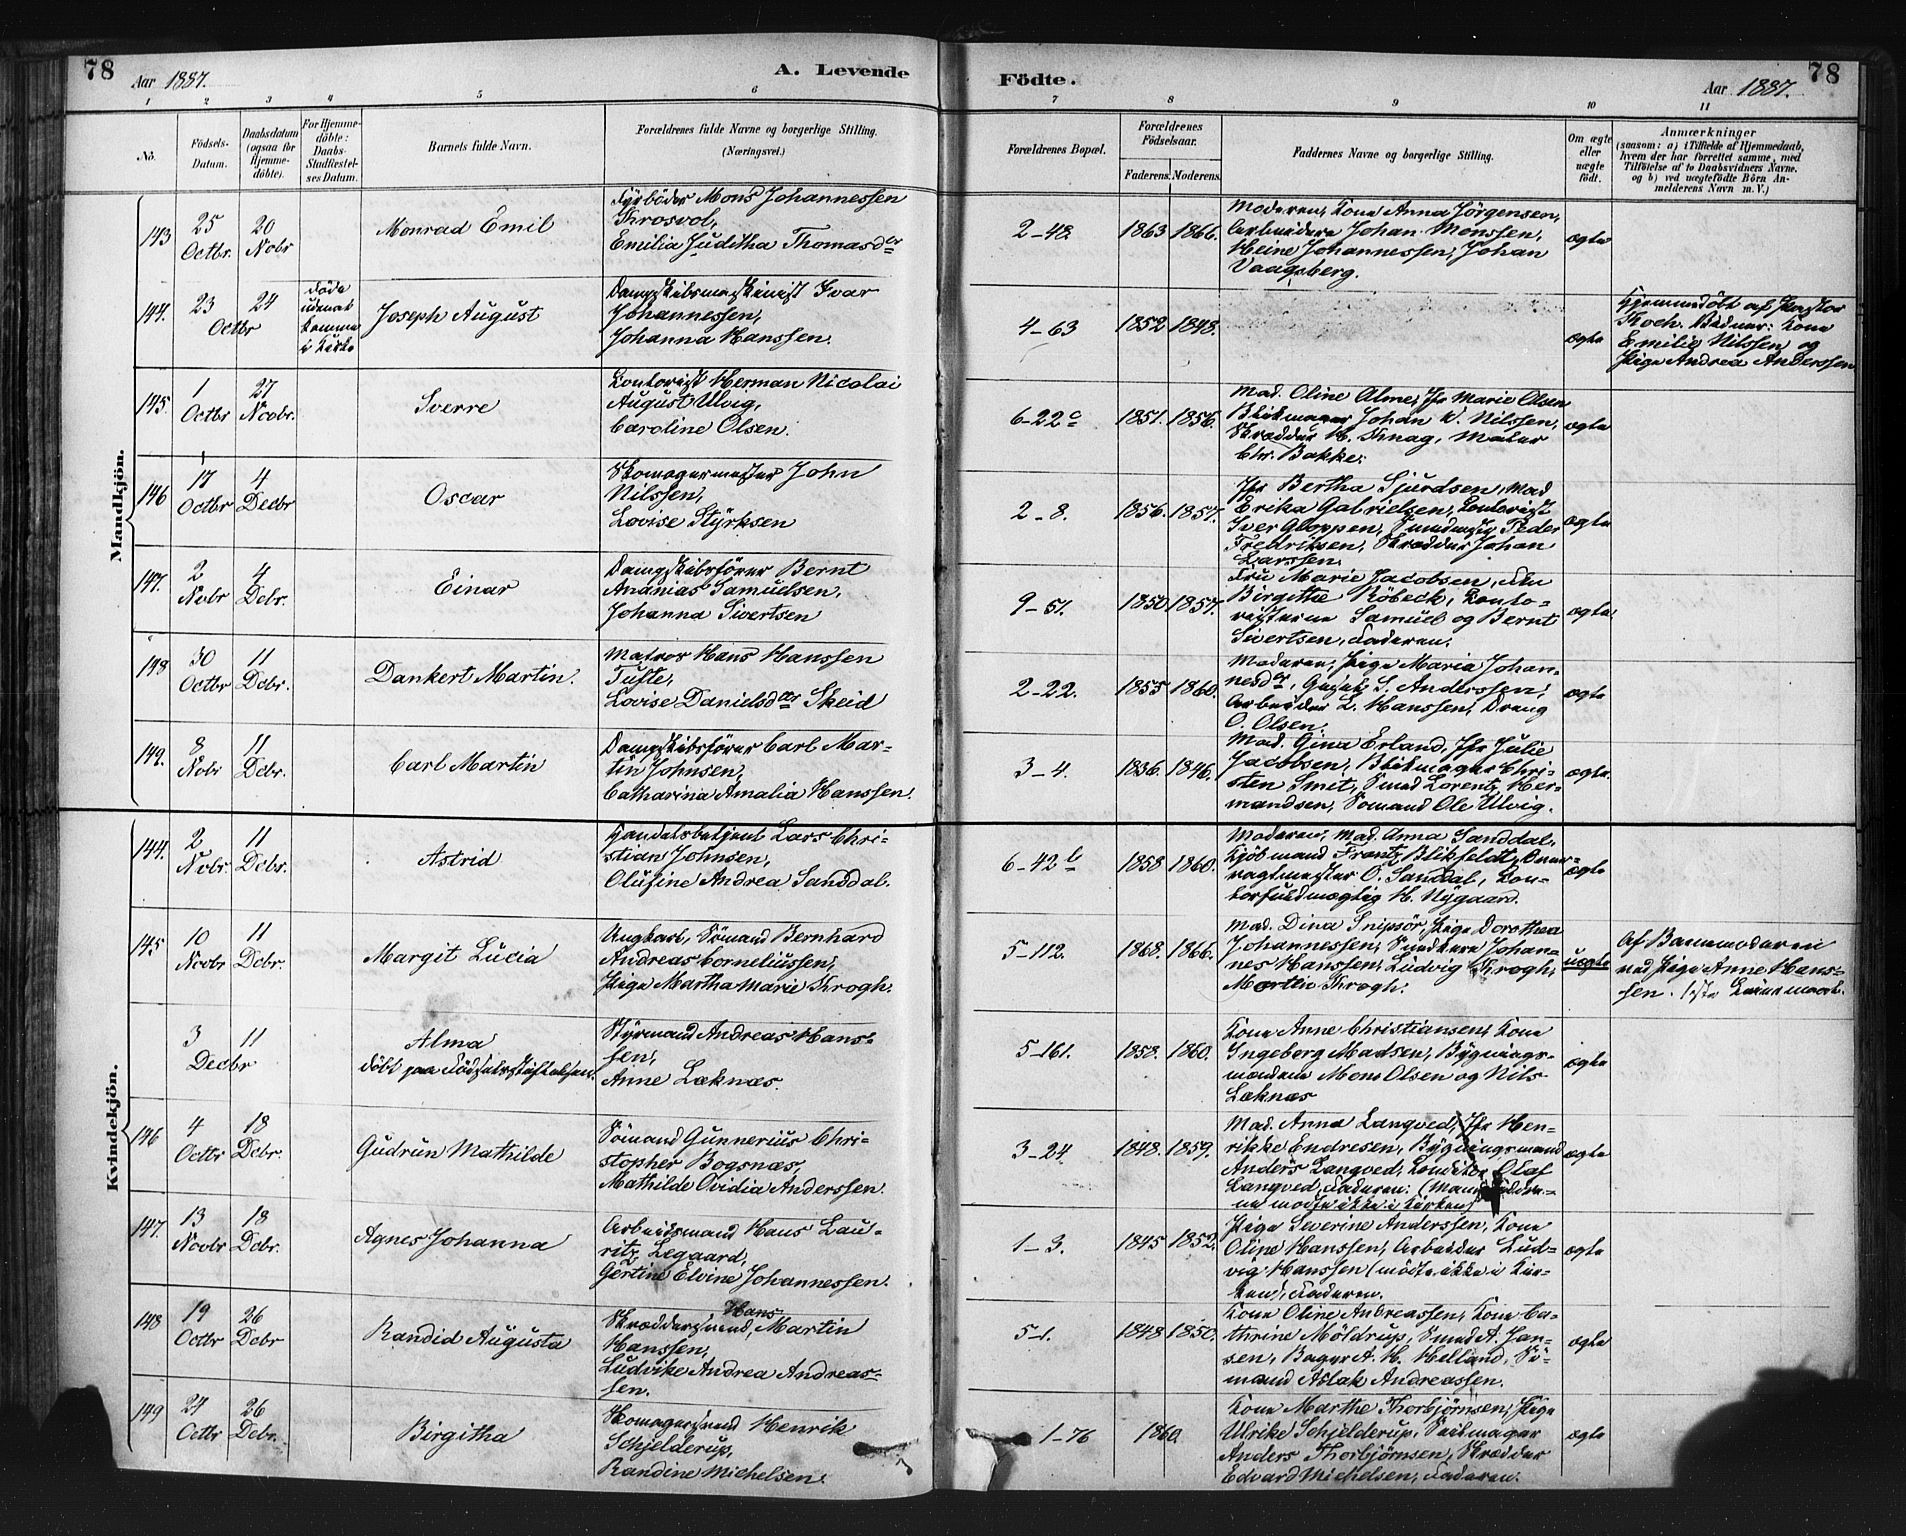 78
Aar 1887.
A. Levende
Födte.
Aar 1887.
78
1 2 3 4 5 6 7 8 9 10 11
No.
Födsels-
Datum.
Daabsdatum
(ogsaa for
Hjemme-
döbte).
For Hjemme-
döbte:
Daabs-
Stadfæstel-
ses Datum.
Barnets fulde Navn.
Forældrenes fulde Navne og borgerlige Stilling.
(Næringsvei.)
Forældrenes Bopæl.
Forældrenes
Födselsaar.
Faderens. Moderens.
Faddernes Navne og borgerlige Stilling.
Om ægte
eller
uægte
födt.
Anmærkninger
(saasom: a) i Tilfælde af Hjemmedaab,
hvem der har forrettet samme, med
Tilföielse af to Daabsvidners Navne.
og b) ved uægtefödte Börn An-
melderens Navn m. V.)
Mandkjön.
143
25
Octbr.
20
Novbr
Monrad Emil
Fyrböder Mons Johannessen
Krosvol,
Emilia Juditha Thomasder
2-48.
1863 1866.
Moderen, Kone Anna Jörgensen,
Arbeidere Johan Monssen,
Heine Johannessen, Johan
Vaagsberg.
ægte
144.
23 24
Octbr
Joseph August
Dampskibsmaskinist Ivar
Johannessen,
Johanna Hanssen.
4-63
1852 1848.
ægte
Hjemmedöbt af Pastor
Koch. Vidner: Kone
Emilie Nilssen og
Pige Andrea Anderssen
145.
1
Octbr
27
Novbr.
Sverre
Kontorist Herman Nicolai
August Ulvig,
Caroline Olsen.
6-22c
1851. 1856.
Mad. Oline Alme, Jfr Marie Olsen
Blikmager Johan W. Nilssen,
Skrædder H. Knag, Maler
Chr. Bakke.
ægte
146
17
Octbr
4
Decbr
Oscar
Skomagermester John
Nilssen,
Lovise Styrksen
2-8.
1856. 1857.
Jfr Bertha Sjurdsen, Mad
Erika Gabrielsen, Kontorist
Iver Gloppen, Peder
Fredriksen, Skrædder Johan
Larssen.
ægte
147.
2
Novbr
4
Dcbr.
Einar
Dampskibsförer Bernt
Ananias Samuelsen,
Johanna Sivertsen
9-51.
1850 1857.
Fru Marie Jacobsen, Fru
Birgithe Röbeck, Konto-
risterne Samuel og Bernt
Sivertsen, Faderen.
ægte
148
30
Octbr
11
Dcbr.
Dankert Martin.
Matros Hans Hanssen
Tufte,
Lovise Danielsder Skeid
2-22.
1855 1860.
Moderen, Pige Maria Johan-
nesder, S. Anderssen,
Arbeider L. Hanssen, Dreng
O. Olsen.
ægte
149.
8
Novbr
11
Dcbr.
Carl Martin
Dampskibsförer Carl Mar-
tin Johnsen,
Catharina Amalia Hanssen.
3-4.
1836. 1846.
Mad. Gina Erland, Jfr Julie
Jacobsen, Blikmager Chri-
sten Smit, Smed Lorentz Her-
mandsen, Sömand Ole Ulvig.
ægte.
Kvindekjön.
144.
2
Novbr.
11
Dcbr.
Astrid
Handelsbetjent Lars Chri-
stian Johnsen,
Olufine Andrea Sanddal.
6-42b
1858 1860.
Moderen, Mad. Anna Sanddal,
Kjöbmand Frantz Blikfeldt, Over-
vagtmester O. Sanddal, Kon-
torfuldmægtig H. Nygaard.
ægte
145
10
Novbr
11
Dcbr.
Margit Lucia
Ungkarl, Sömand Bernhard
Andreas Corneliussen,
Pige Martha Marie Krogh.
5-112.
1868. 1866.
Mad. Dina Snipsör, Pige Dorothea
Johannessen, Johan-
nes Hanssen, Ludvig Krogh,
Martin Krogh.
uægte
Af Barnemoderen
ved Pige Anne Hans-
sen. 1ste Leiermaal.
3 11
Decbr
Alma
döbt paa Födselsstiftelsen.
Styrmand Andreas Hans-
sen,
Anne Læknæs.
5-161.
1858. 1860.
Kone Anne Christiansen, Kone
Ingeborg Madsen, Bygnings-
mændene Mons Olsen og Nils
Læknæs
ægte
146
4
Octbr
18
Dcbr.
Gudrun Mathilde
Sömand Gunnerius Chri-
stopher Bogsnæs,
Mathilde Ovidia Anderssen.
3-24.
1848. 1859.
Mad. Anna Langved, Jfr Hen-
rikke Endresen, Bygningsmand
Anders Langved, Konditor Olaf
Langved, Faderen. (Mand. Faddre-
ne mödte ikke i Kirken)
ægte
147.
13
Novbr
18
Dcbr.
Agnes Johanna
Arbeidsmand Hans Lau-
ritz Legaard,
Gertine Elvine Johannessen.
1-3.
1845 1852.
Pige Severine Anderssen, Kone
Oline Hanssen, Arbeider Lud-
vig Hanssen (mödte ikke i Kir-
ken), Faderen.
ægte
148
19
Octbr
26
Dcbr
Randid Augusta
Hans
Skræddersvend, Martin
Hanssen,
Ludvike Andrea Andreas-
sen.
5-1.
1848 1850.
Kone Oline Andreassen, Kone Ca-
thrine Möldrup, Smed A. Jan-
sen, Bager A. H. Helland, Sö-
mand Aslak Andreassen.
ægte
149
24
Octbr
26
Dcbr.
Birgitha
Skomagersvend Henrik
Schjelderup,
Randine Michelsen.
1-76
1860.
Kone Marthe Thorbjörnsen, Pige
Ulrike Schjelderup, Seilmager
Anders Thorbjörnsen, Skrædder
Edvard Michelsen, Faderen.
ægte